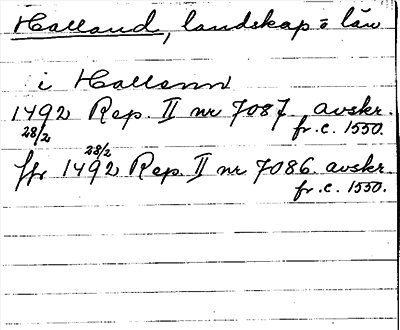 Halland, landskap o län
i Hallann
1492 Rep. II nr 7087 avskr.
28/2 fr. c. 1550.
28/2
ffr 1492 Rep. II nr 7086. avskr.
fr. c. 1550.